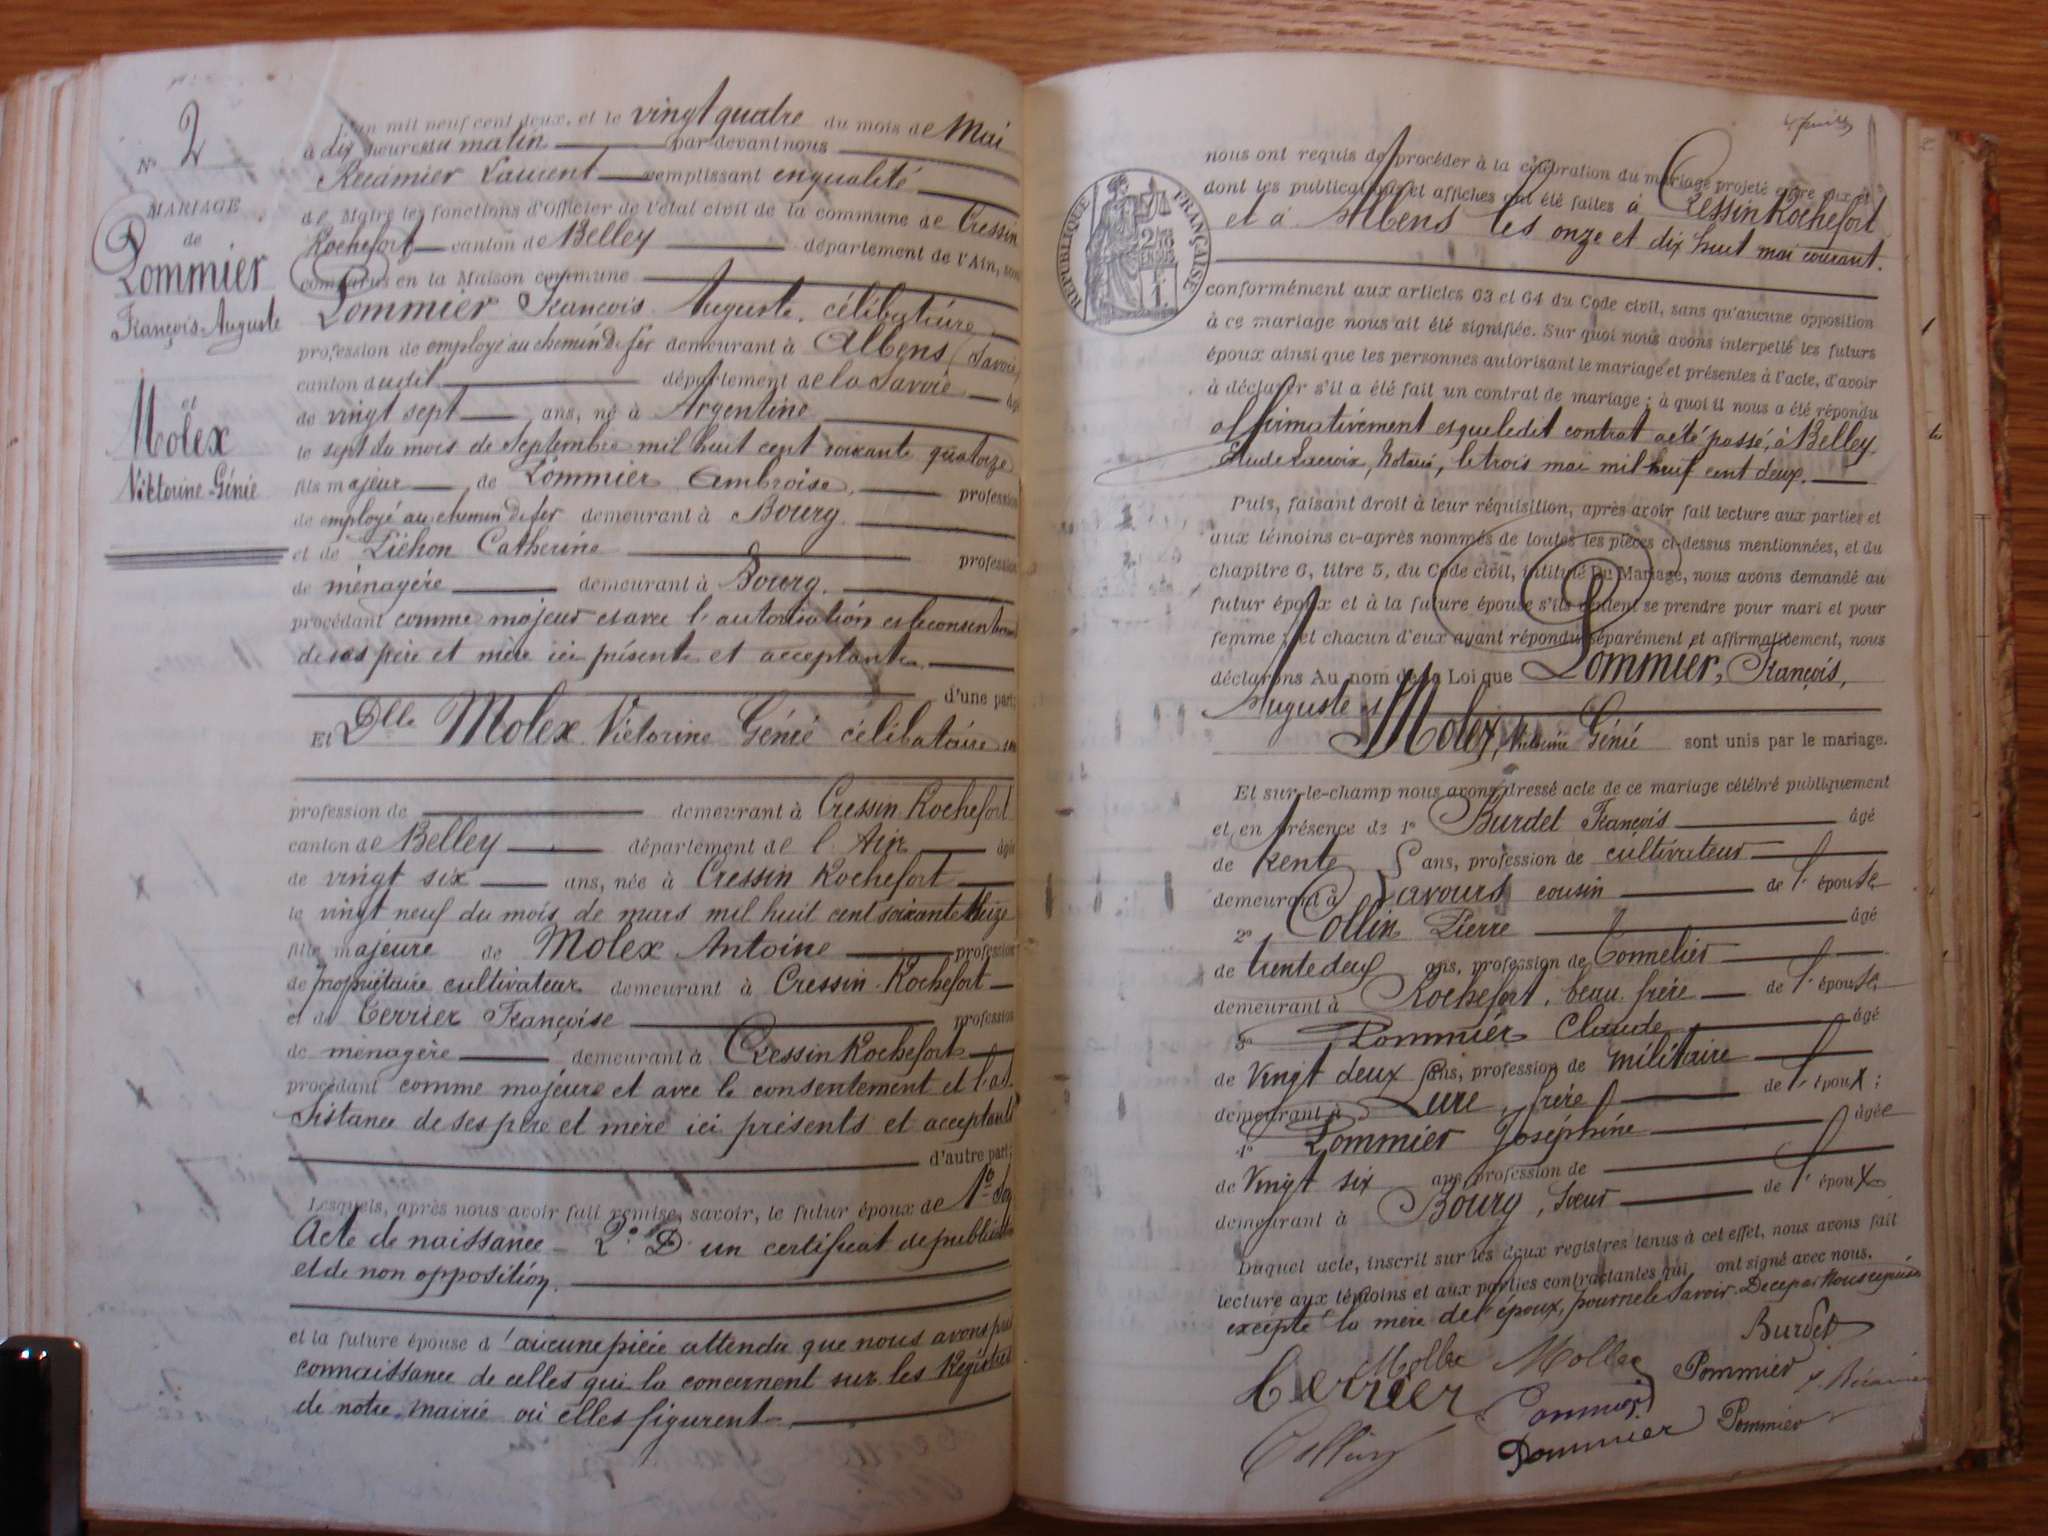 N° 2
MARIAGE
de
Pommier
François-Auguste
et
Molex
Viktorine-Génie
L'an mil neuf cent deux, et le vingt quatre du mois de Mai
à dix heures du matin par devant nous
Récamier Laurent remplissant en qualité
de Maire les fonctions d'Officier de l'état civil de la commune de Cressin
Rochefort canton de Belley département de l'Ain, sont
comparus en la Maison commune
Pommier François Auguste, célibataire
profession de employé au chemin de fer demeurant à Albens (Savoie)
canton dudit département de la Savoie âgé
de vingt sept ans, né à Argentine
le sept du mois de Septembre mil huit cent soixante quatorze
fils majeur de Pommier Ambroise, profession
de employé au chemin de fer demeurant à Bourg
et de Piéhon Catherine profession
de ménagère demeurant à Bourg.
procédant comme majeur et avec l'autorisation et le consentement
de ses père et mère ici présents et acceptants
d'une part;
Et Dlle Molex Victorine Génie célibataire
profession de demeurant à Cressin Rochefort
canton de Belley département de l'Ain âgée
de vingt six ans, née à Cressin Rochefort
le vingt neuf du mois de mars mil huit cent soixante seize
fille majeure de Molex Antoine profession
de propriétaire cultivateur demeurant à Cressin-Rochefort
et de Terrier Françoise profession
de ménagère demeurant à Cressin Rochefort
procédant comme majeure et avec le consentement et l'as
sistance de ses père et mère ici présents et acceptants
d'autre part;
Lesquels, après nous avoir fait remise, savoir, le futur époux de 1° son
Acte de naissance 2° D'un certificat de publication
et de non opposition
et la future épouse d'aucune pièce attendu que nous avons pris
connaissance de celles qui la concernent sur les Registres
de notre mairie où elles figurent
nous ont requis de procéder à la célébration du mariage projeté entre eux et
dont les publications et affiches ont été faites à Cressin Rochefort
et à Albens les onze et dix huit mai courant.
RÉPUBLIQUE FRANÇAISE
conformément aux articles 63 et 64 du Code civil, sans qu'aucune opposition
à ce mariage nous ait été signifiée. Sur quoi nous avons interpellé les futurs
époux ainsi que les personnes autorisant le mariage et présentes à l'acte, d'avoir
à déclarer s'il a été fait un contrat de mariage; à quoi il nous a été répondu
affirmativement et que ledit contrat a été passé à Belley
Etude Lacroix, Notaire, le trois mai mil neuf cent deux.
Puis, faisant droit à leur réquisition, après avoir fait lecture aux parties et
aux témoins ci-après nommés de toutes les pièces ci-dessus mentionnées, et du
chapitre 6, titre 5, du Code civil, intitulé Du Mariage, nous avons demandé au
futur époux et à la future épouse s'ils veulent se prendre pour mari et pour
femme; et chacun d'eux ayant répondu séparément et affirmativement, nous
déclarons Au nom de la Loi que Pommier, François,
Auguste et
Molex, Victorine Génie sont unis par le mariage.
Et sur-le-champ nous avons dressé acte de ce mariage célébré publiquement
et en présence de 1° Burdet François âgé
de trente ans, profession de cultivateur
demeurant à Lavours cousin de l'épouse
2° Collin Pierre âgé
de trente deux ans, profession de Tonnelier
demeurant à Rochefort, beau frère de l'épouse,
3° Pommier Claude âgé
de Vingt deux ans, profession de militaire
demeurant à Lure, frère de l'époux;
4° Pommier Joséphine âgée
de Vingt six ans profession de
demeurant à Bourg, sœur de l'époux
Duquel acte, inscrit sur les deux registres tenus à cet effet, nous avons fait
lecture aux témoins et aux parties contractantes qui ont signé avec nous.
excepté la mère de l'époux, pour ne le savoir De ce par Nous requise
Burdet
Mollex Mollex Pommier
Terrier Pommier
Collin Pommier Pommier